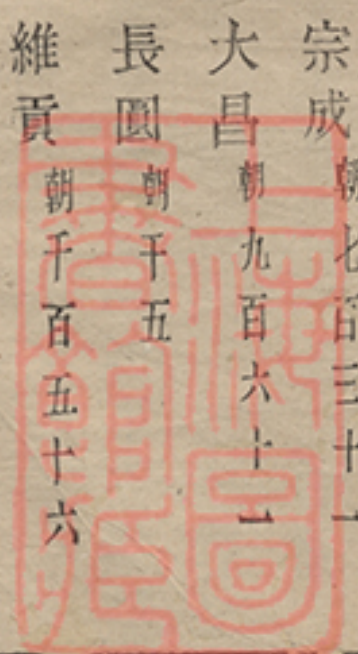 宗成朝七百三十一
大昌朝九百六十一
長圓朝千五
維貢朝千百五十六
上海圖
書館藏